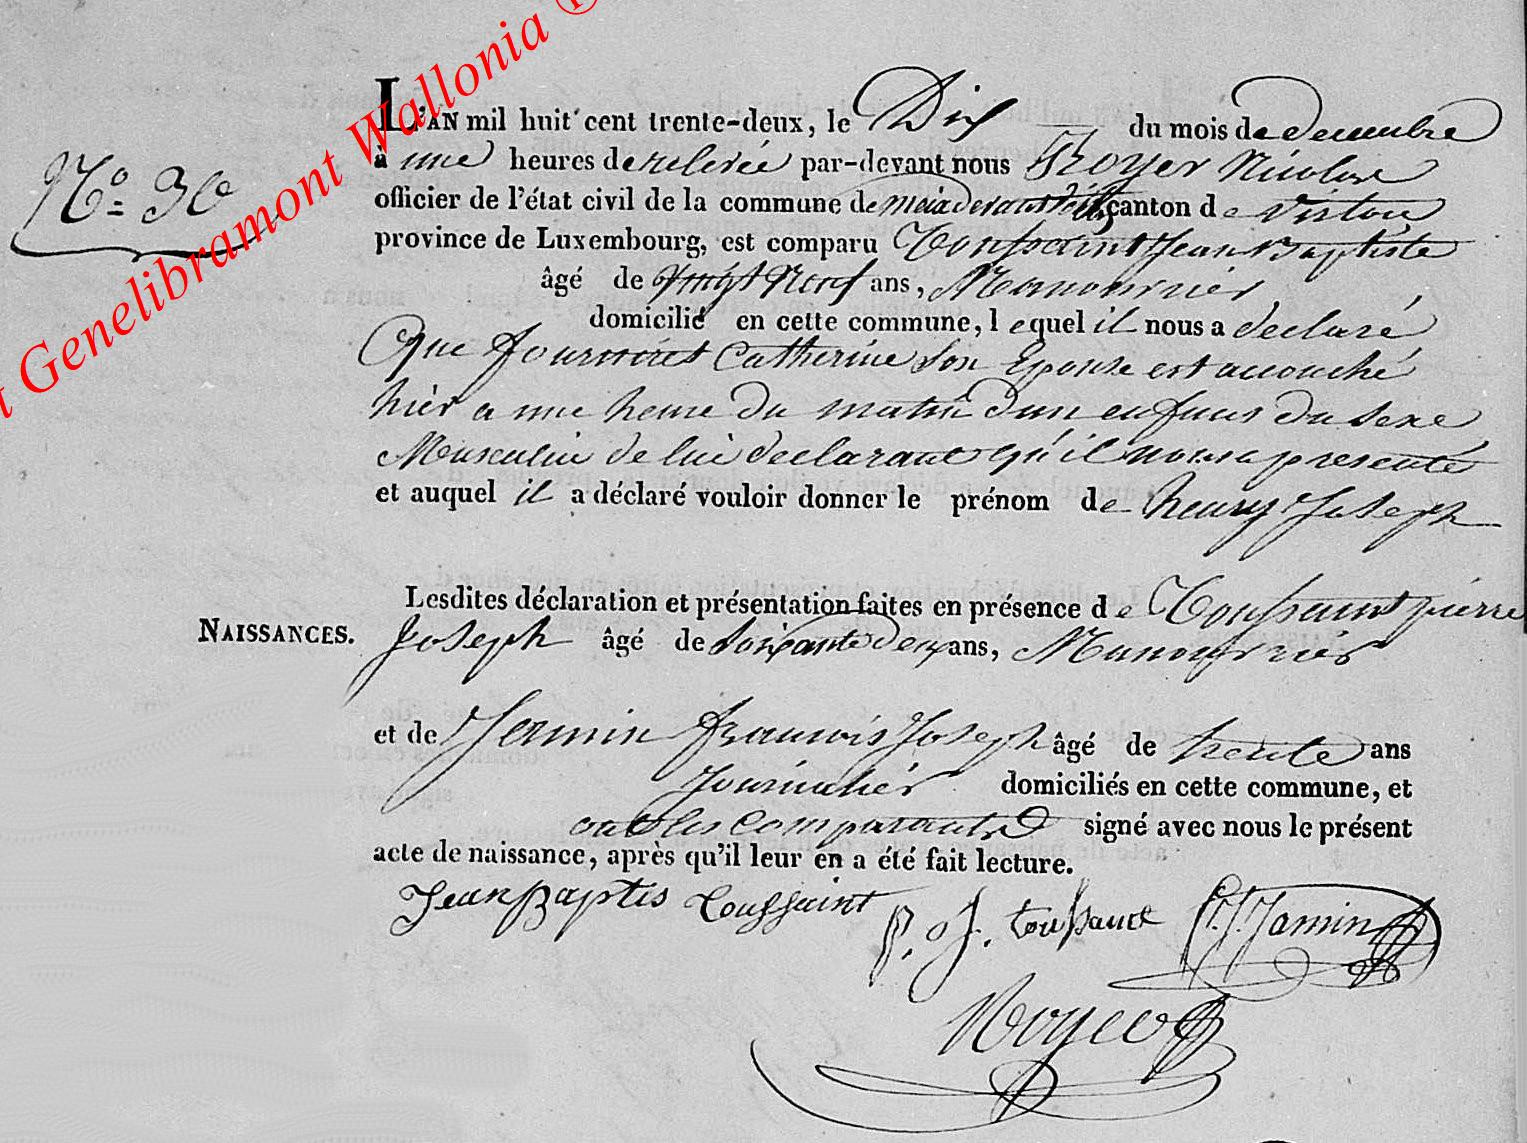 Genelibramont Wallonia ©
L'AN mil huit cent trente-deux, le Dix du mois de decembre
N° 36
à une heures de relevée par-devant nous Royer Nicolas
officier de l'état civil de la commune de meix devant virton canton de Virton
province de Luxembourg, est comparu Toussaint Jean Baptiste
âgé de vingt Neuf ans, Manouvrier
domicilié en cette commune, lequel il nous a declaré
Que fourniret Catherine Son Epouse est accouché
hier a une heure du matin d'un enfant du Sexe
Masculin de lui declarant qu'il nous a presenté
et auquel il a déclaré vouloir donner le prénom de henry Joseph
Lesdites déclaration et présentation faites en présence de Toussaint pierre
NAISSANCES.
Joseph âgé de Soixante Deux ans, Manouvrier
et de Jamin francois Joseph âgé de trente ans
Journalier domiciliés en cette commune, et
ont les Comparants signé avec nous le présent
acte de naissance, après qu'il leur en a été fait lecture.
Jean Baptis Toussaint P. J. toussaint f. J. Jamin
Royer